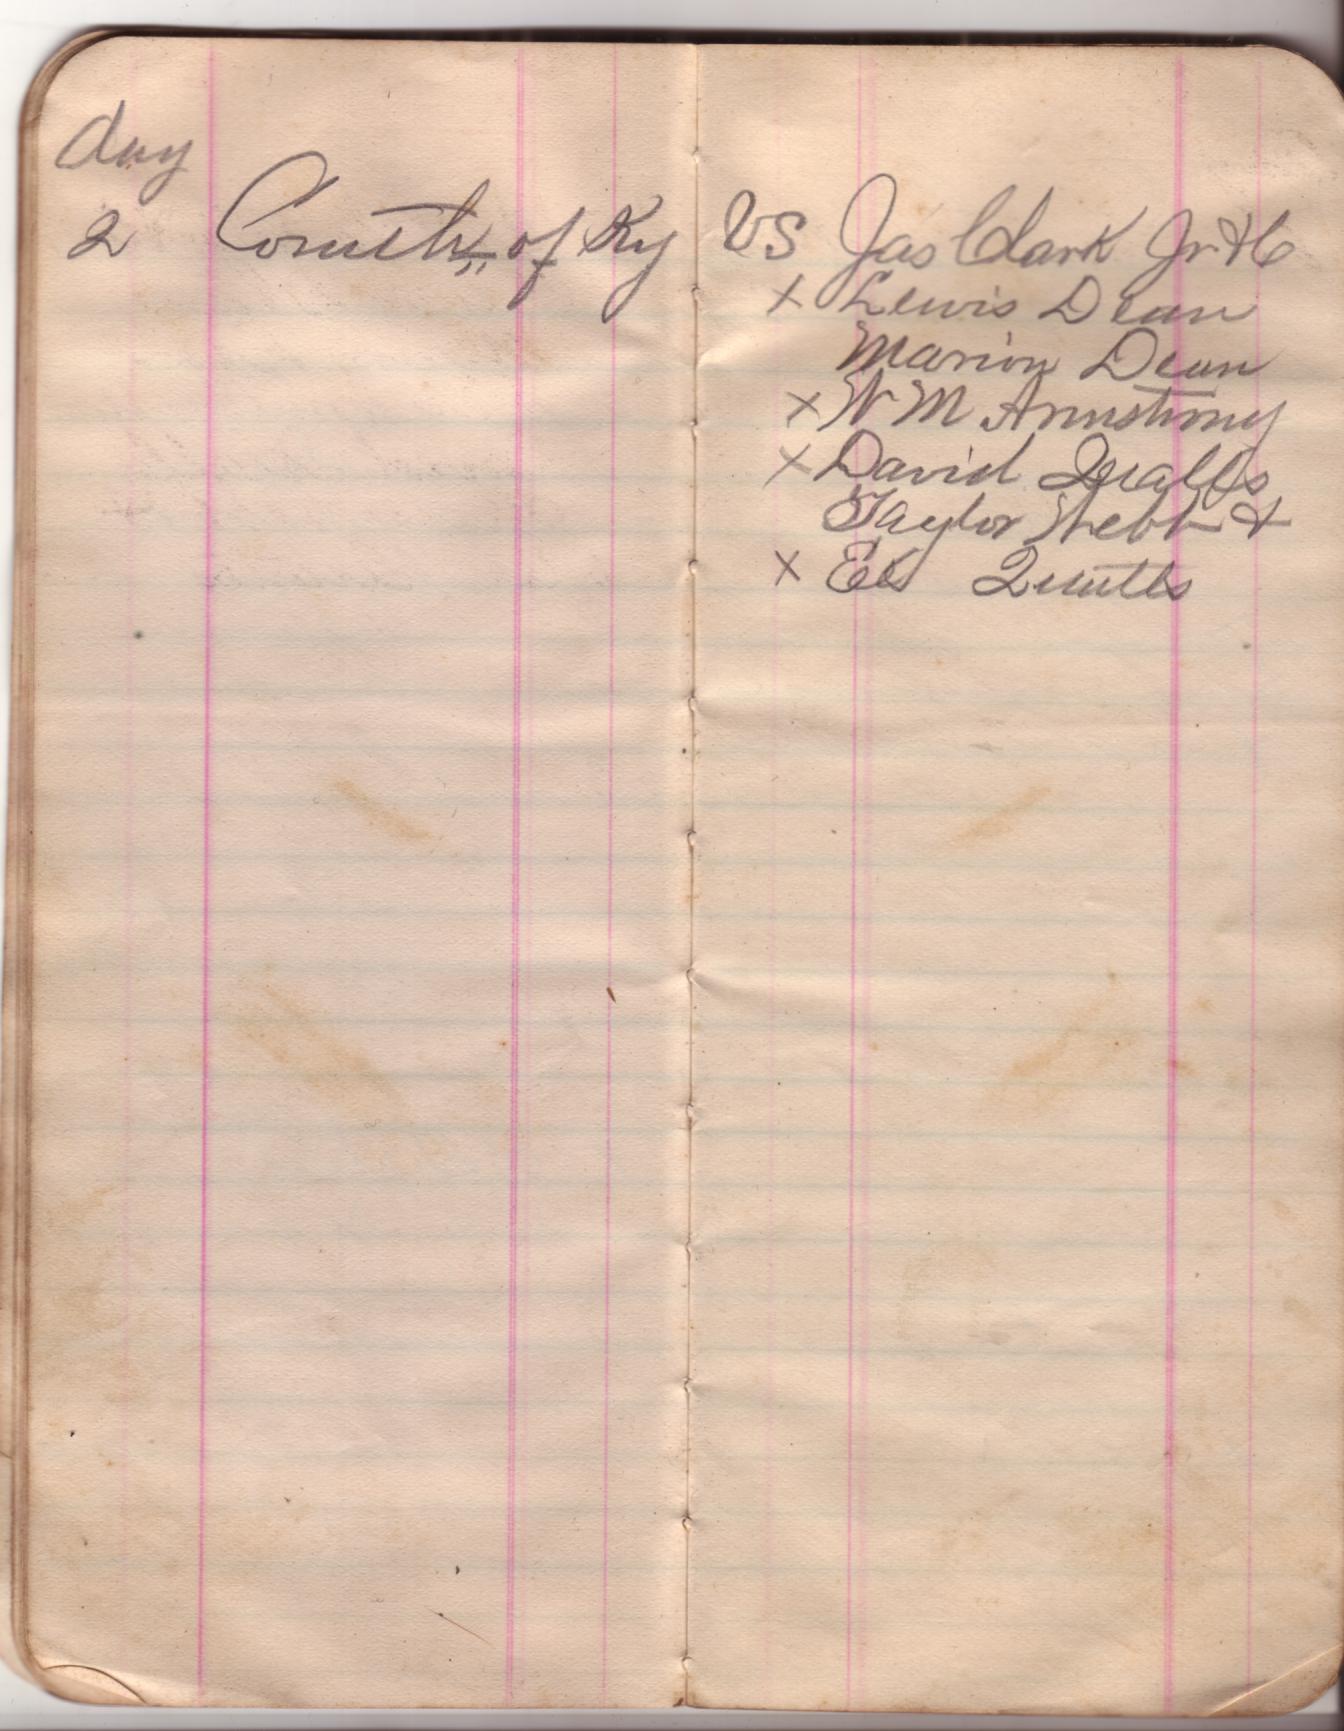 day
2 Comwth, of Ky VS Jas Clark Jr &C
x Lewis Dean
Marion Dean
x W M Armstrong
x David Qualls
Taylor Webb &
x